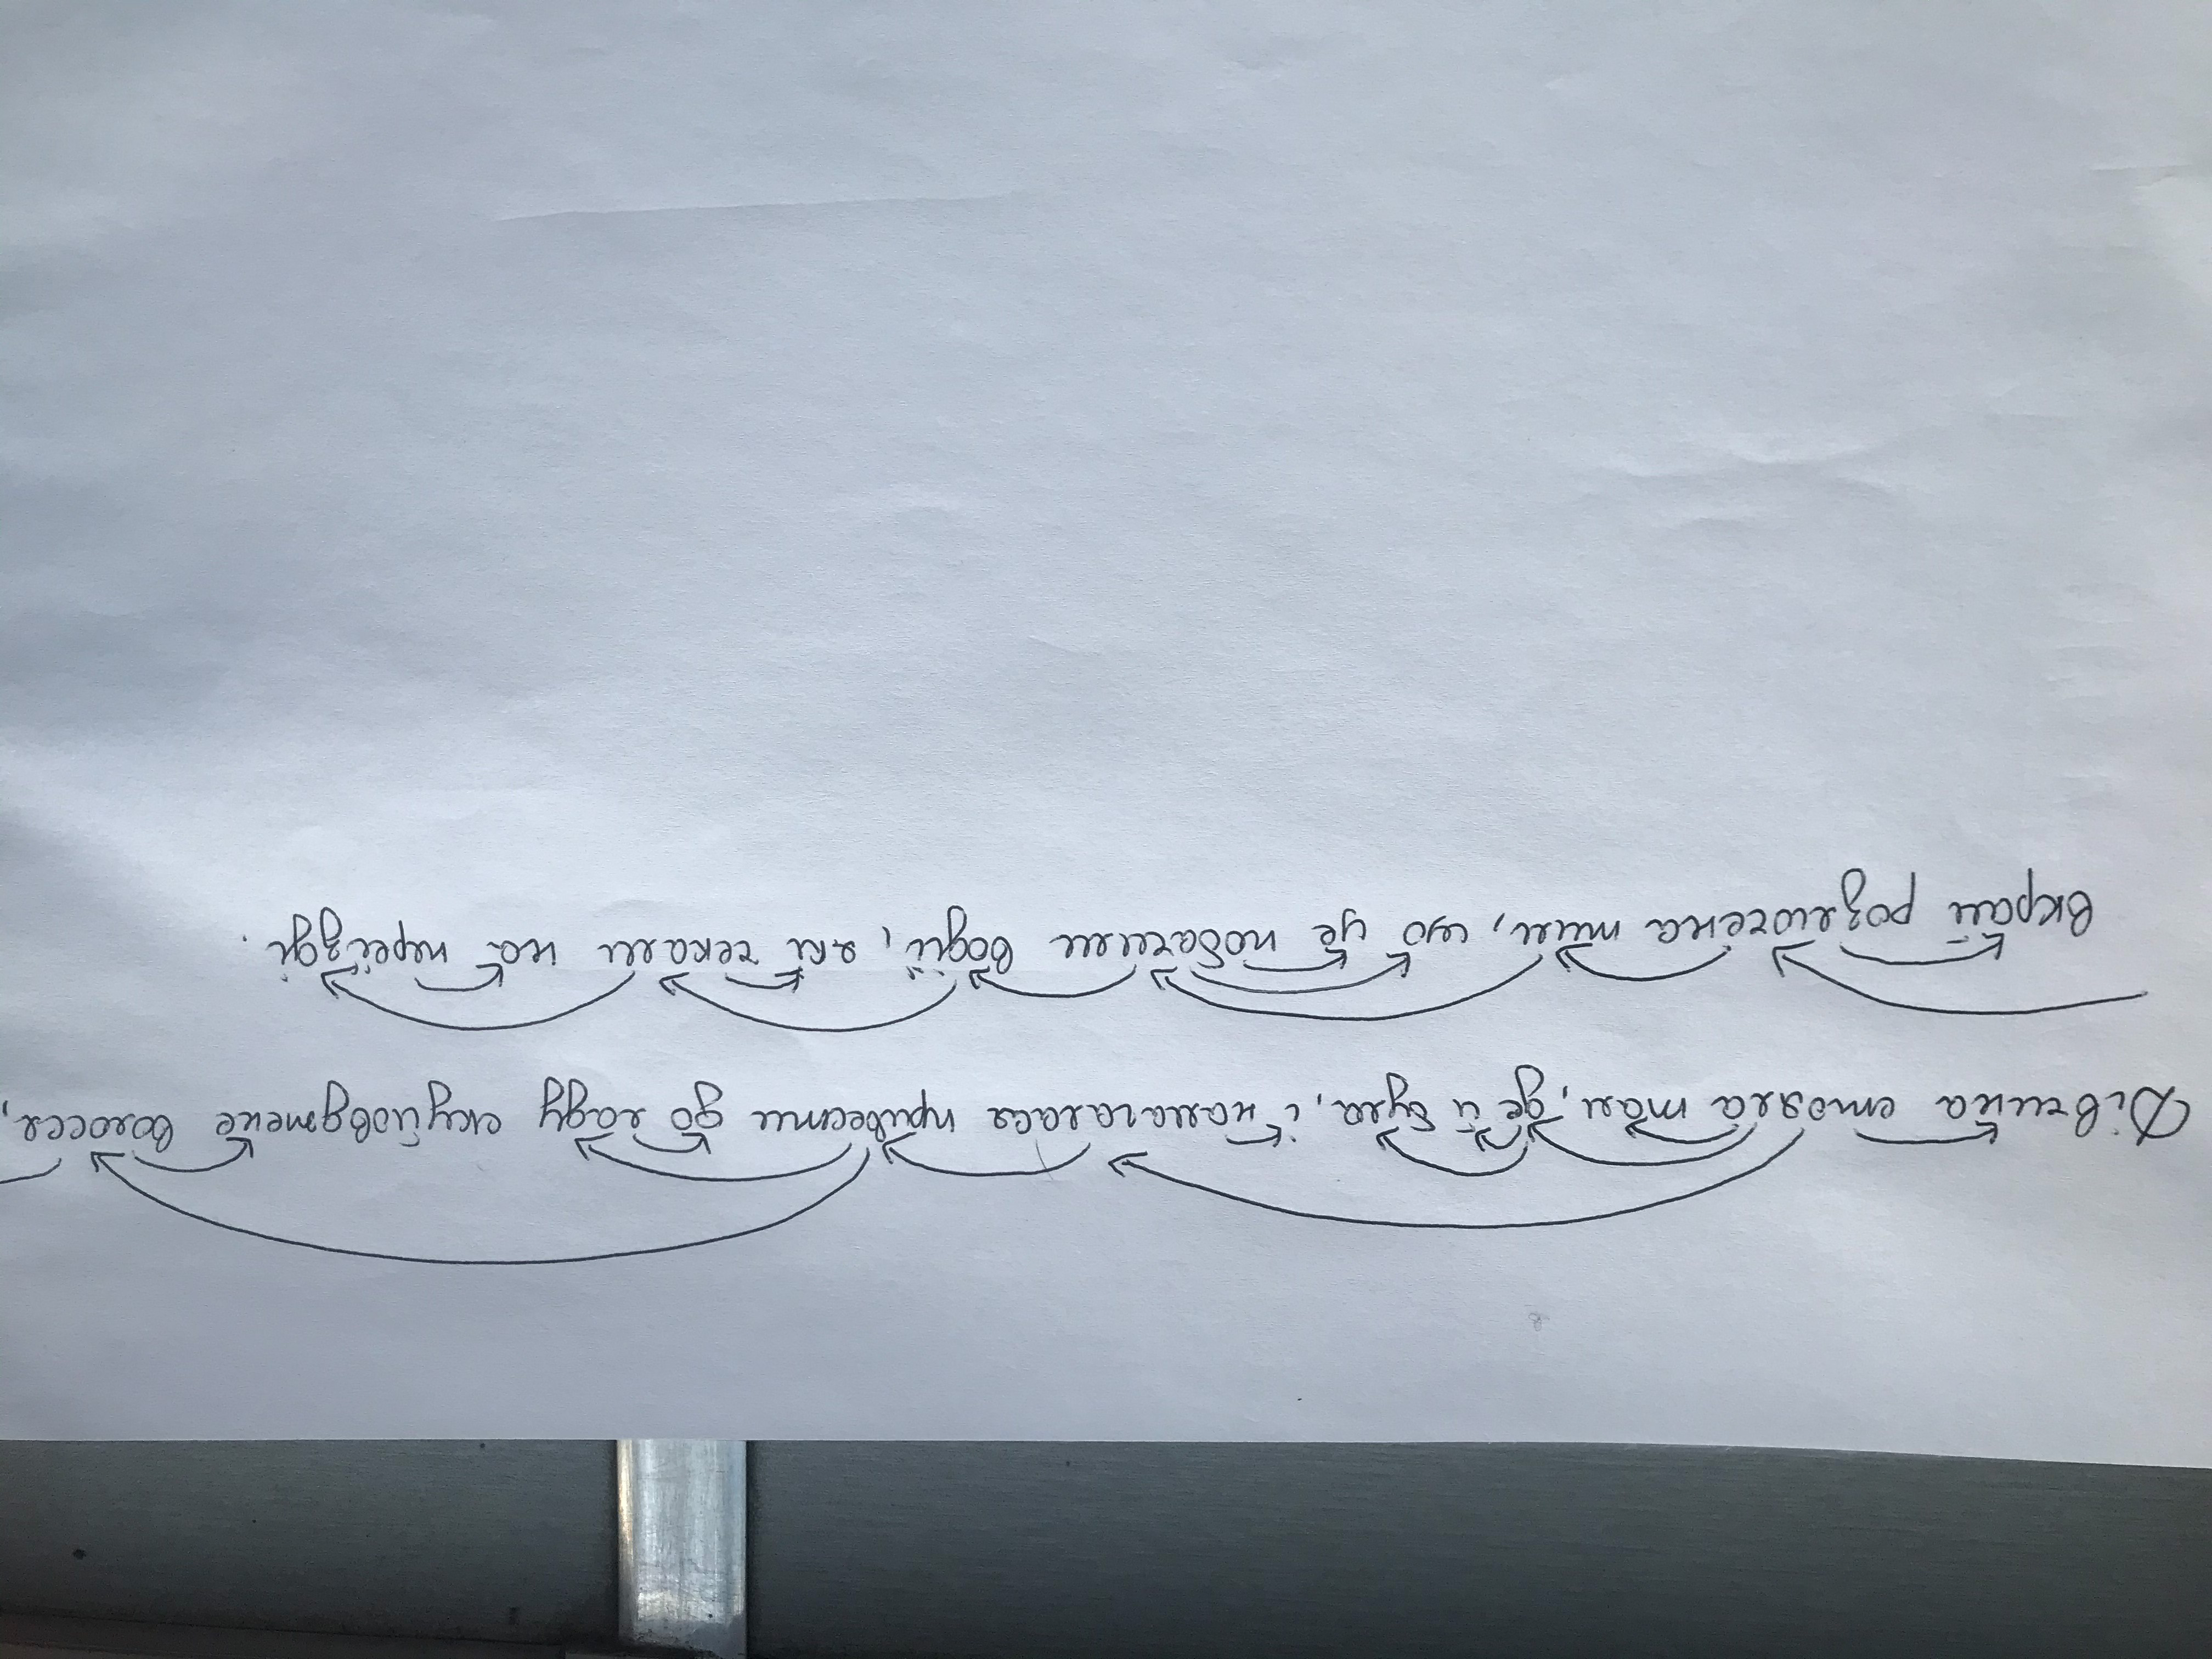 Дівчина стояла там, де й була, і намагалася привести до ладу скуйовджене волосся,
вкрай розлючена тим, що це побачили водії, які чекали на переїзді.